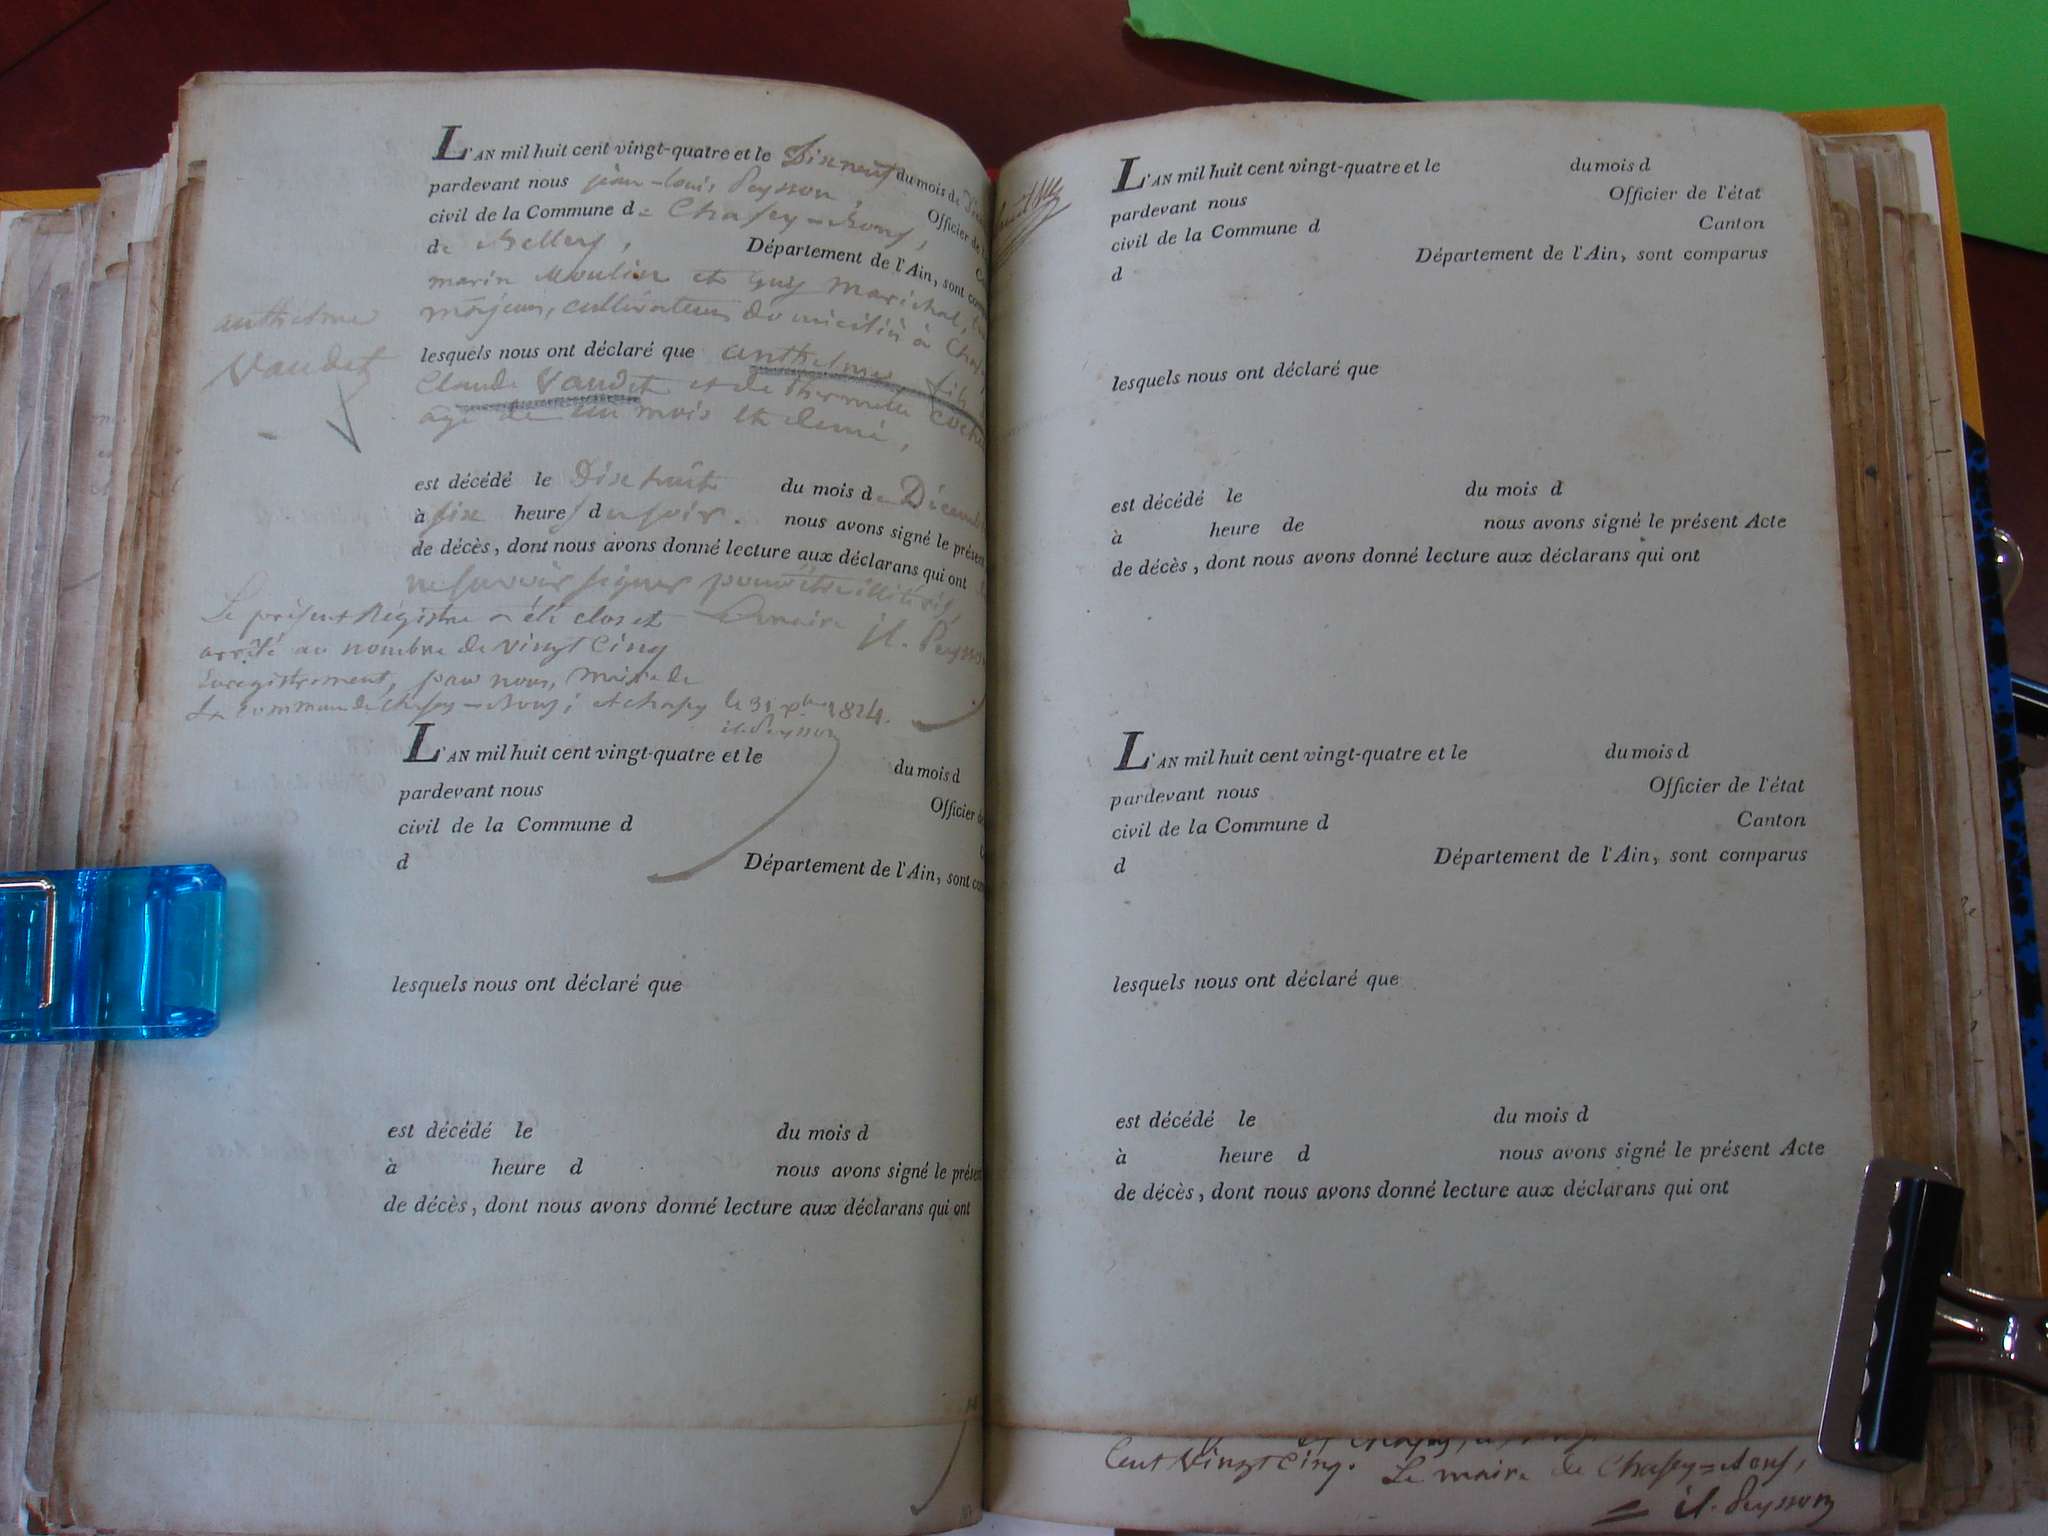 L'AN mil huit cent vingt-quatre et le Dixneuf du mois d
pardevant nous jean-louis Peysson, Officier de
civil de la Commune d= Chasey=Bons,
de Belley, Département de l'Ain, sont com
marin Moulin et Guy Marichal,
majeurs, cultivateurs domiciliés à
anthelme
Vaudet
lesquels nous ont déclaré que anthelme, fils
Claude Vaudet et de
agé de un mois et demi,
est décédé le Dixhuit du mois de Décemb
à six heures du soir. nous avons signé le présent
de décès, dont nous avons donné lecture aux déclarans qui ont
ne savoir signer pour être illiterés,
Le maire jl. Peysson
Le présent Régistre a été clos et
arrêté au nombre de vingt Cinq
Enregistrement, par nous, maire de
La commune de Chasey=Bons; à Chasey le 31 xbre 1824.
jl. Peysson
L'AN mil huit cent vingt-quatre et le du mois d
pardevant nous Officier de
civil de la Commune d
d Département de l'Ain, sont com
lesquels nous ont déclaré que
est décédé le du mois d
à heure d nous avons signé le présent
de décès, dont nous avons donné lecture aux déclarans qui ont
L'AN mil huit cent vingt-quatre et le du mois d
pardevant nous Officier de l'état
civil de la Commune d Canton
d Département de l'Ain, sont comparus
lesquels nous ont déclaré que
est décédé le du mois d
à heure de nous avons signé le présent Acte
de décès, dont nous avons donné lecture aux déclarans qui ont
L'AN mil huit cent vingt-quatre et le du mois d
pardevant nous Officier de l'état
civil de la Commune d Canton
d Département de l'Ain, sont comparus
lesquels nous ont déclaré que
est décédé le du mois d
à heure d nous avons signé le présent Acte
de décès, dont nous avons donné lecture aux déclarans qui ont
Cent Vingt Cinq. Le maire de Chasey=Bons,
= jl. Peysson